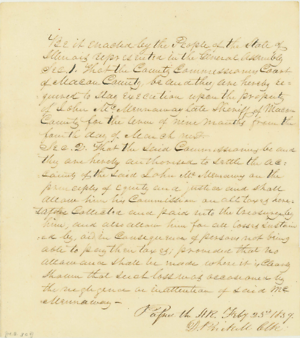 Be it enacted by the People of the State of
Illinois represented in the General Assembly
Sec. 1. That the County Commissioners Court
of Macon County be and they are hereby re-
quired to stay execution upon the property
of John McMennamay late Sheriff of Macon
County for the term of nine months from the
fourth day of March next
Sec. 2. That the said Commissioners be and
they are hereby authorised to settle the ac-
counts of the said John McMennamy on the
principles of equity and justice and shall
allow him his Commission on all taxes
collected and paid into the treasury by
him, and also allow him for all losses sustain
ed by him in consequence of persons not being
able to pay their taxes, provided that no
allowance shall be made where it is
shown that such loss was occasioned by
the negligence or inattention of said Mc
Mennamay
Pr of the H.R. Feby 23d 1837.
D. Prickett Clk.